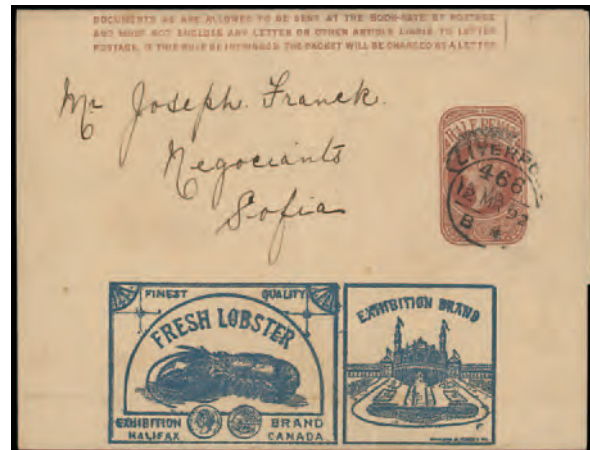 DOCUMENTS AS ARE ALLOWED TO BE SENT AT THE BOOK-RATE OF POSTAGE
AND MUST NOT INCLUDE ANY LETTER OR OTHER ARTICLE LIABLE TO LETTER
POSTAGE. IF THIS RULE BE INFRINGED THE PACKET WILL BE CHARGED AS A LETTER
Mr Joseph. Franck.
Negociants
Sofia
HALF PENNY
LIVERPO
466
12 MR 92
B 4
FINEST QUALITY
FRESH LOBSTER
EXHIBITION BRAND
HALIFAX CANADA
EXHIBITION BRAND